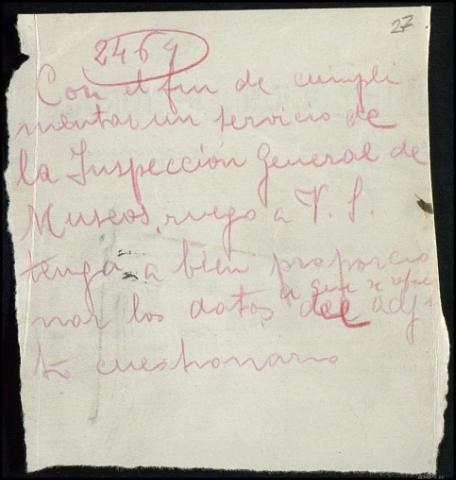 27
2464
Con el fin de cumpli
mentar un servicio de
la Inspección General de
Museos, ruego a V. S.
tenga a bien proporcio
nar los datos a que se refie
del adj
to cuestionario